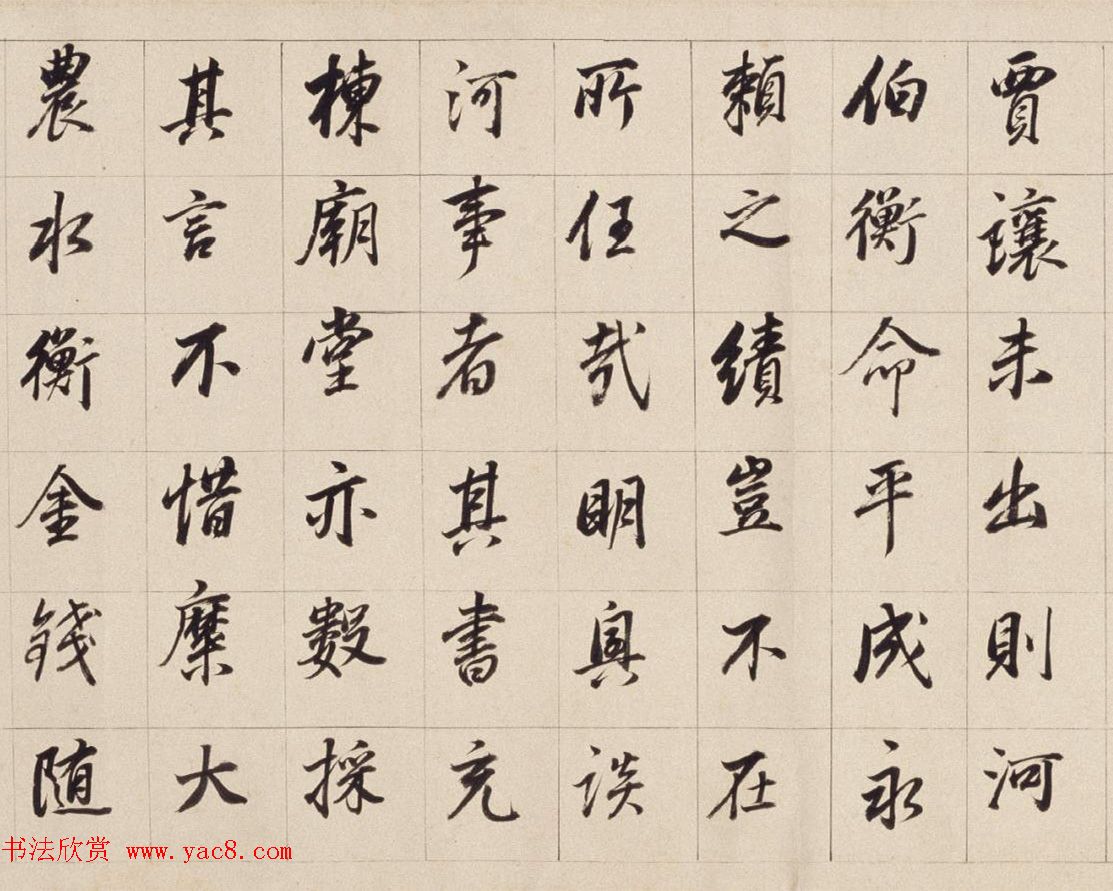 賈讓未出則河
伯衡命平成永
賴之績豈不在
所任哉明興談
河事者其書充
棟廟堂亦數採
其言不惜縻大
農水衡金錢随
书法欣赏 www.yac8.com